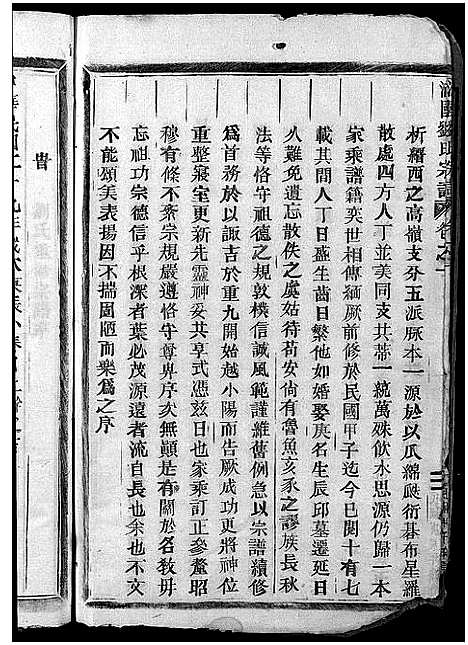 析羅西之高嶺支分五派脈本一源於以瓜綿㒩衍碁布星羅
散處四方人丁並美同支共蒂一統萬殊飲水思源仍歸一本
家乘譜籍奕世相傳緬厥前修於民國甲子迄今已閱十有七
載其間人丁日盛生齒日繁他如婚娶庚名生辰邱墓遷延日
久難免遺忘散佚之虞姑待苟安尚有魯魚亥豕之謬族長秋
法等恪守祖德之規敦樸信誠風範謹維舊例急以宗譜續修
爲首務於以諏吉於重九開始越小陽而告厥成功更將神位
重整寢室而先靈神妥共享式憑兹日也家乘訂正參釐昭
穆有條不紊宗規嚴遵恪守尊卑序次無顚是有關於名敎毋
忘祖功宗德信乎根深者葉必茂源遠者流自長也余也不文
不能頌美表揚因不揣固陋而樂爲之序